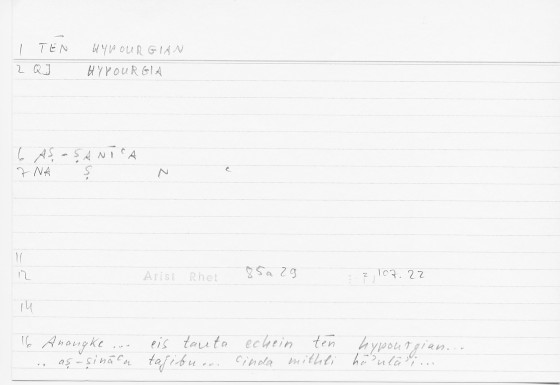 1 TĒN HYPOURGIAN
2 QJ HYPOURGIA
6 AṢ-ṢANĪʿA
7 NA Ṣ N ʿ
11
12 Arist Rhet 85a 29 = 107.22
14
16 Anangke ... eis tauta echein tēn hypourgian...
.. aṣ-ṣināʿa taǧibu... ʿinda mithli